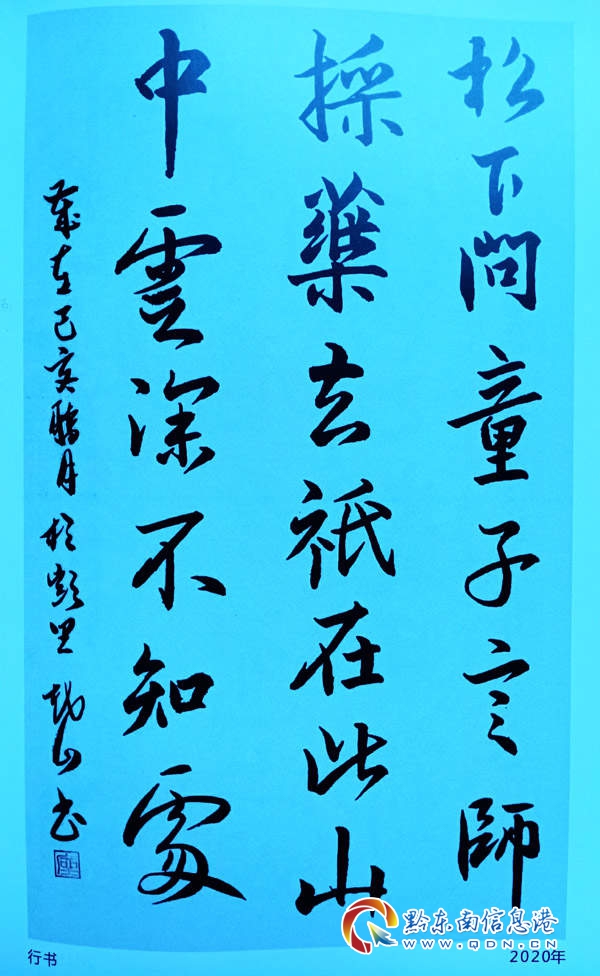 松下問童子言師
採藥去祇在此山
中雲深不知處
歲在己亥臘月於彭里
山书
行书
2020年
黔东南信息港
WWW.QDN.CN